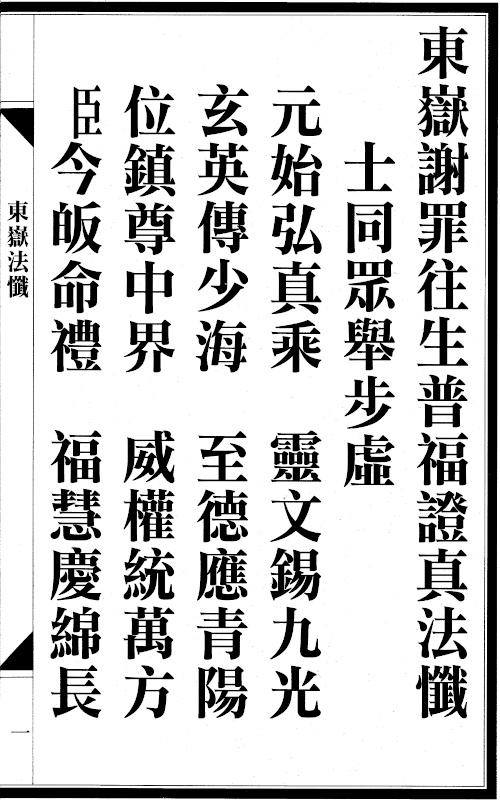 東嶽謝罪往生普福證真法懺
士同眾舉步虛
元始弘真乘　靈文錫九光
玄英傳少海　至德應青陽
位鎮尊中界　威權統萬方
臣今皈命禮　福慧慶綿長
東嶽法懺
一